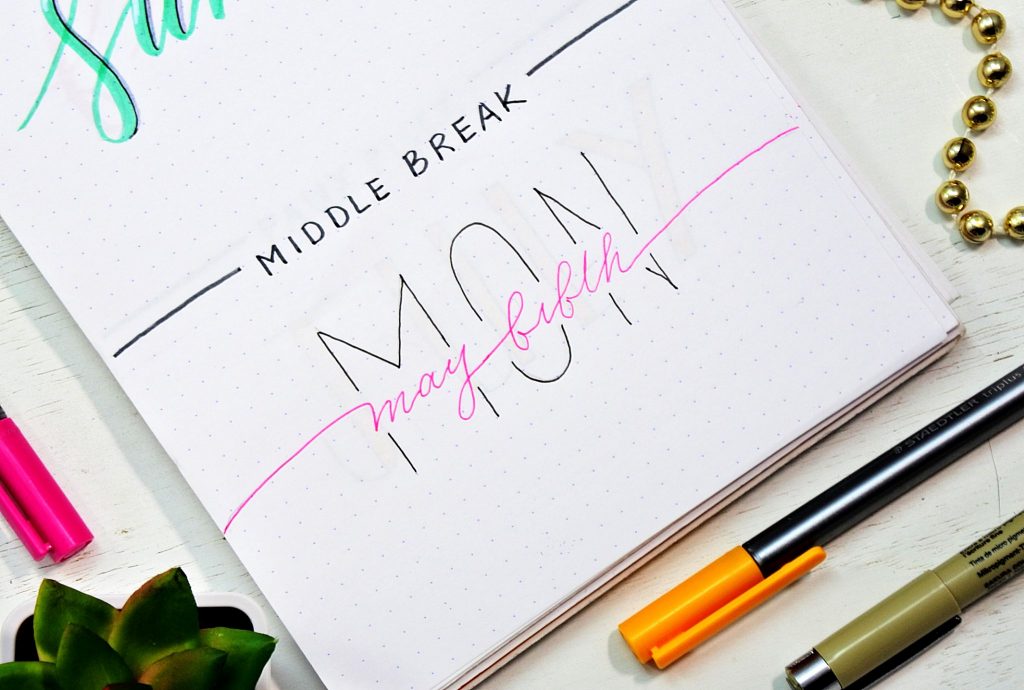 MIDDLE BREAK
MON
may fifth
STAEDTLER triplus